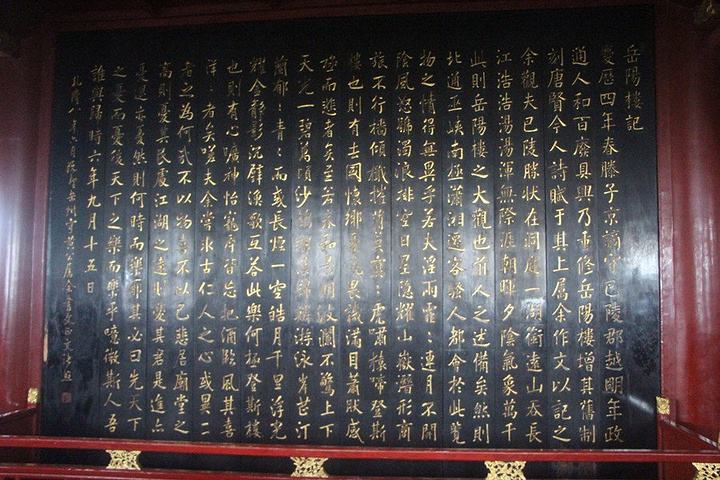 岳陽樓記
慶曆四年春滕子京謫守巴陵郡越明年政
通人和百廢具興乃重修岳陽樓增其舊制
刻唐賢今人詩賦于其上屬余作文以記之
余觀夫巴陵勝狀在洞庭一湖銜遠山吞長
江浩浩湯湯渾無際涯朝暉夕陰氣象萬千
此則岳陽樓之大觀也前人之述備矣然則
北通巫峽南極瀟湘遷客騷人都會於此覽
物之情得無異乎若夫淫雨霏〻連月不開
陰風怒號濁浪排空日星隱耀山嶽潛形商
旅不行檣傾楫摧薄暮冥〻虎嘯猿啼登斯
樓也則有去國懷鄉憂讒畏譏滿目蕭然感
極而悲者矣至若春和景明波瀾不驚上下
天光一碧萬頃沙鷗翔集錦鱗游泳岸芷汀
蘭郁〻青〻而或長煙一空皓月千里浮光
耀金靜影沉璧漁歌互答此樂何極登斯樓
也則有心曠神怡寵辱皆忘把酒臨風其喜
洋〻者矣嗟夫余嘗求古仁人之心或異二
者之為何哉不以物喜不以己悲居廟堂之
高則憂其民處江湖之遠則憂其君是進亦
憂退亦憂然則何時而樂耶其必曰先天下
之憂而憂後天下之樂而樂乎噫微斯人吾
誰與歸時六年九月十五日